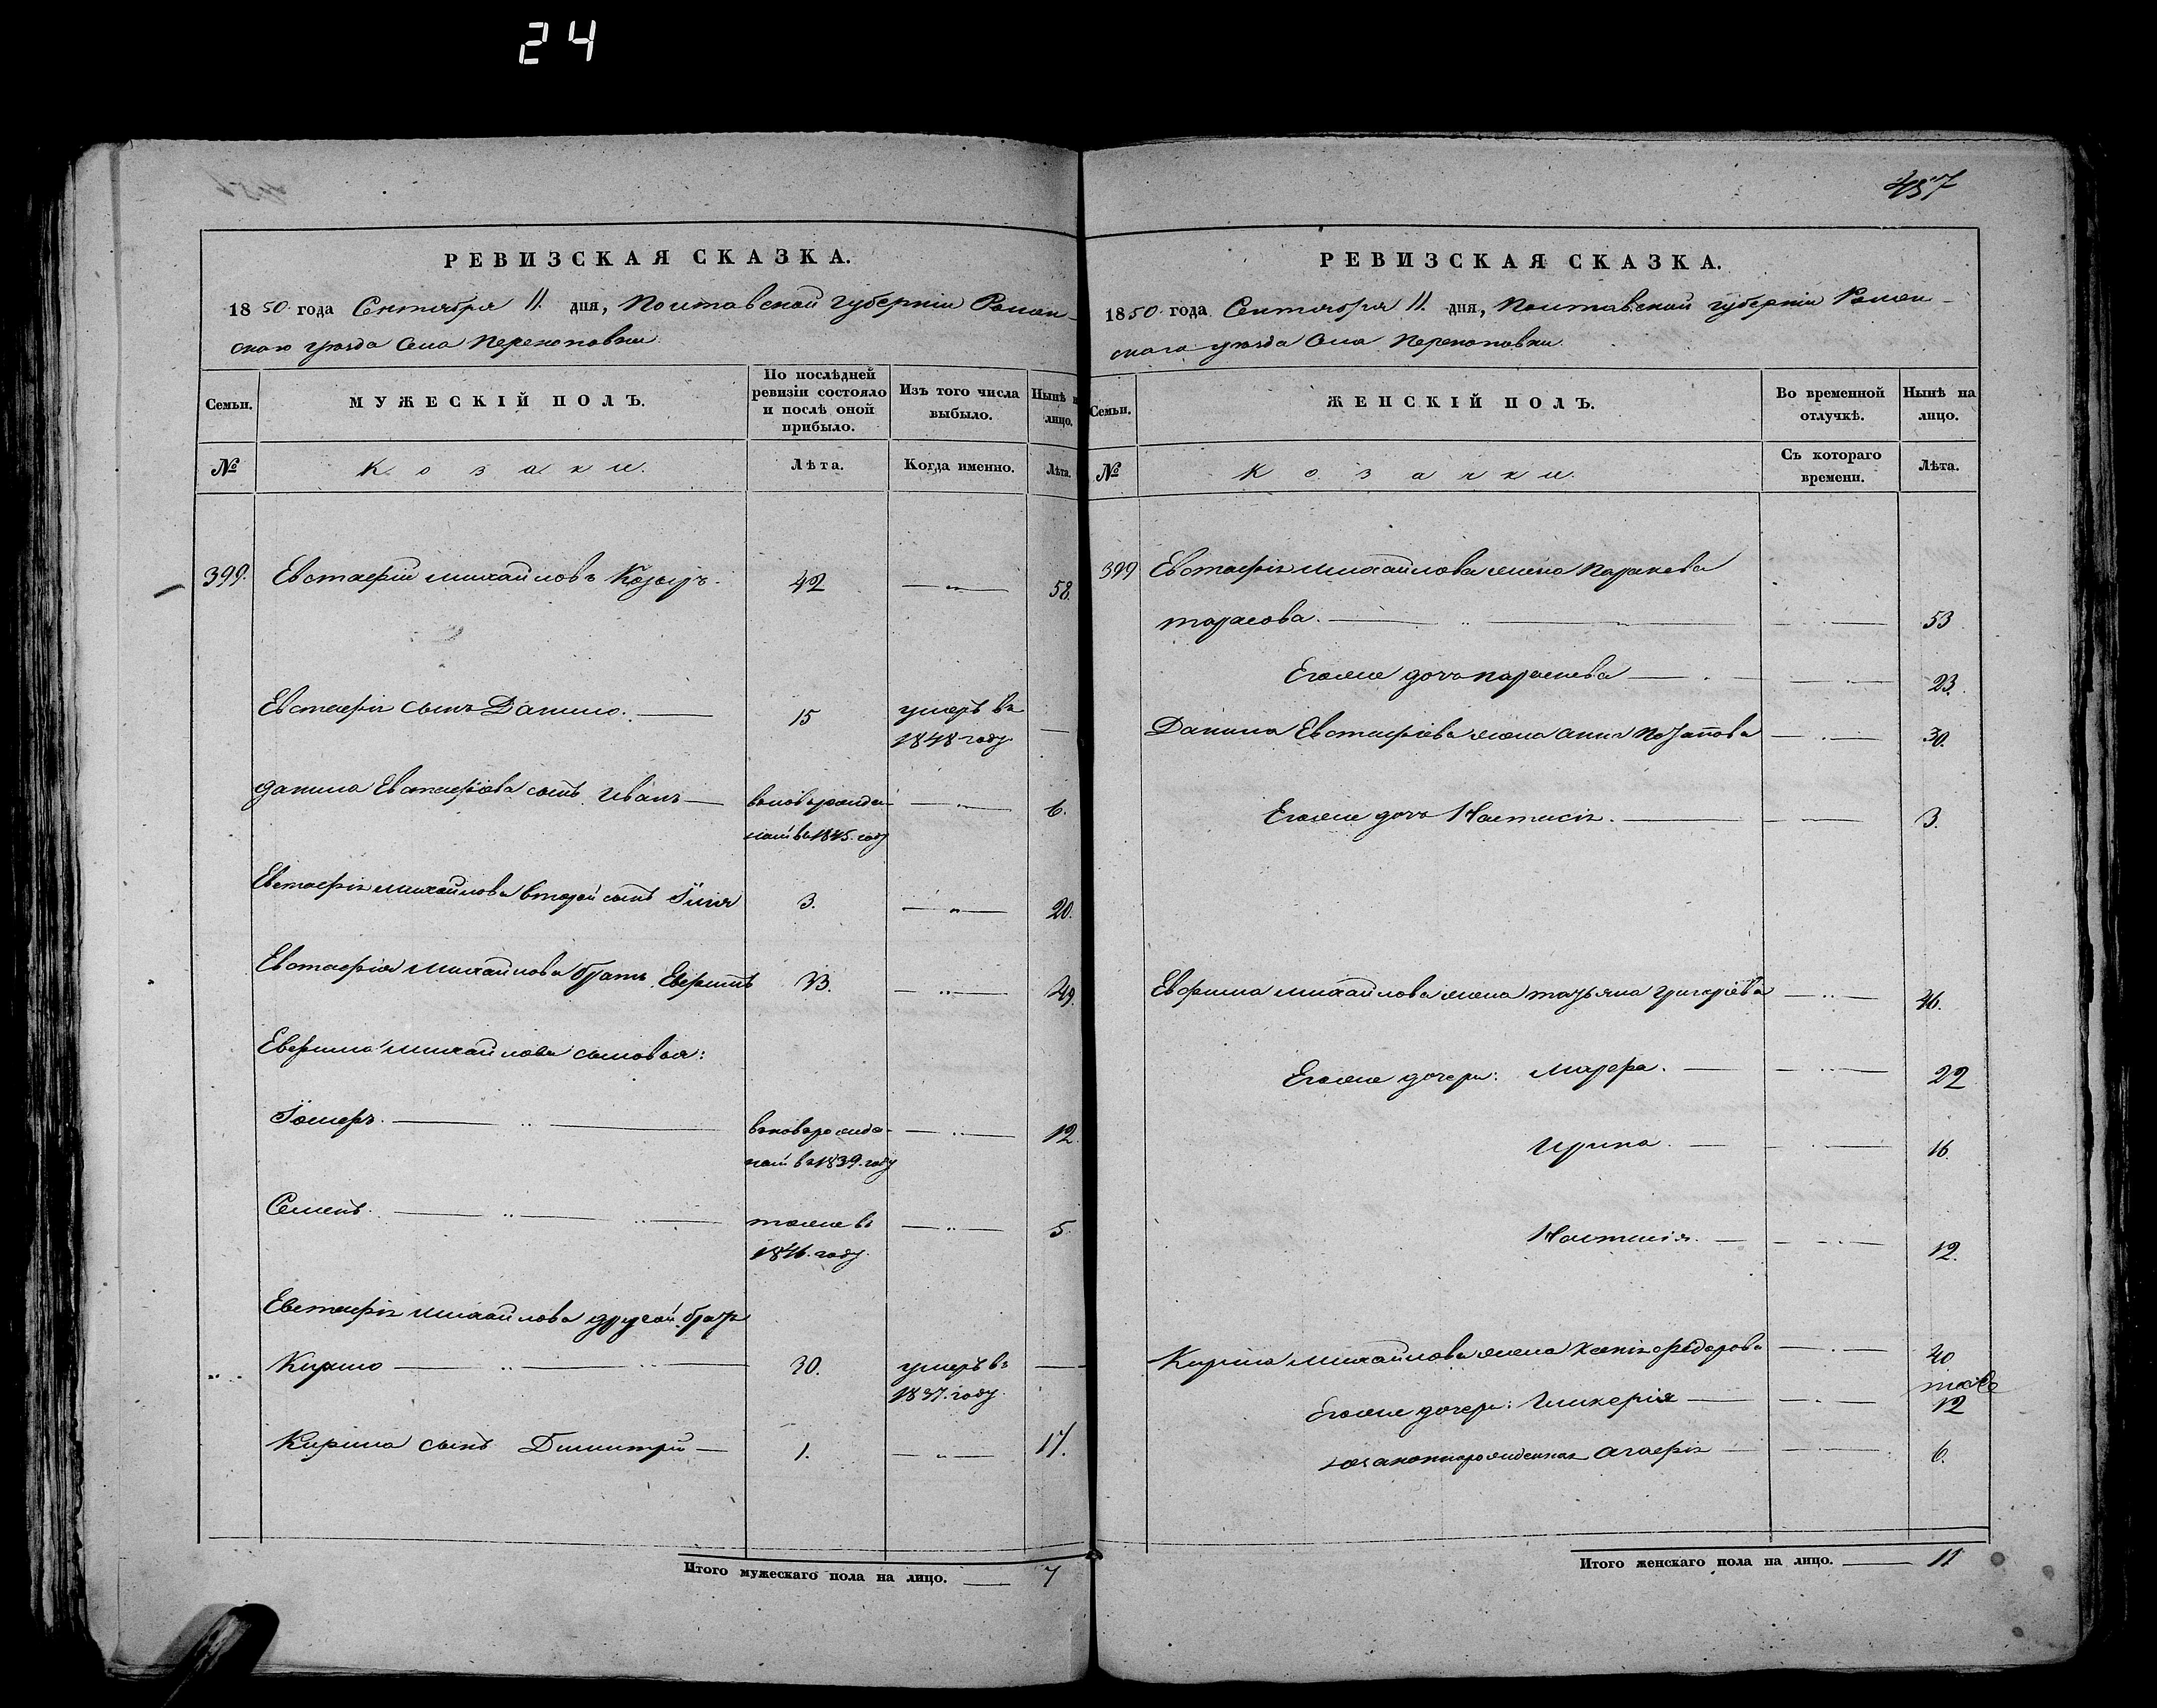 24
457
РЕВИЗСКАЯ СКАЗКА.
1850 года Сентября 11. дня, Полтавской губерніи Ромен-
скаго уезда Села Перекоповки
Семьи.
МУЖЕСКІЙ ПОЛЪ.
По послѣдней ревизіи состояло и послѣ оной прибыло.
Изъ того числа выбыло.
Нынѣ на лицо.
№
Козаки.
Лѣта.
Когда именно.
Лѣта.
399. Евстафій Михайловъ Козыръ. 42 — 58.
Евстафія сынъ Данило. — 15 умеръ въ —
1848 году
Данила Евстафіева сынъ Иванъ — вновьрожде- — 6.
ной въ 1845. году
Евстафія Михайлова второй сынъ Илія 3. — 20.
Евстафія Михайлова братъ Евфимъ 33. — 49.
Евфима Михайлова сыновья:
— вновьрожде- — 12.
ной въ 1839. году
Семенъ. — тоже въ — 5
1846. году.
Евстафія Михайлова другой братъ
Кирило — 30. умеръ въ —
1837. году.
Кирила сынъ Димитрій — 1. — 17.
Итого мужескаго пола на лицо. — 7
РЕВИЗСКАЯ СКАЗКА.
1850 года Сентября 11. дня, Полтавской губерніи Ромен-
скаго уезда Села Перекоповки.
Семьи.
ЖЕНСКІЙ ПОЛЪ.
Во временной отлучкѣ.
Нынѣ на лицо.
№
Козачки.
Съ котораго времени.
Лѣта.
399 Евстафія Михайлова жена Параскева
Тарасова. — 53
Егоже дочь Параскева — 23.
Данила Евстафіева жена Анна — 30.
Егоже дочь Настасія. — 3.
Евфима Михайлова жена Татьяна Григорьева — 46.
Егоже дочери: Марфа. — 22
Ирина. — 16.
Настасія. — 12.
Кирила Михайлова жена Ксенія Федорова — 40
Егоже дочери: Гликерія — 12
Агафія — 6.
Итого женскаго пола на лицо. — 11